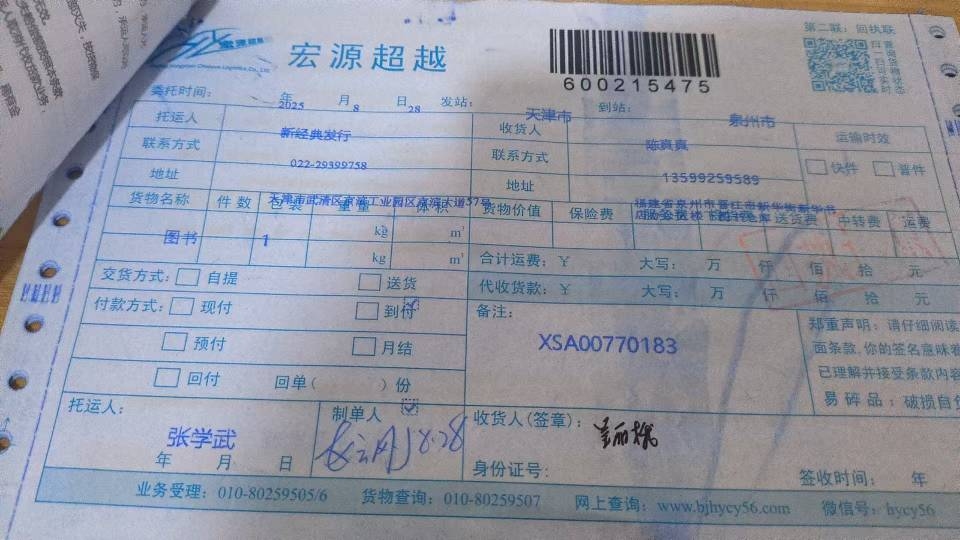 宏源超越
600215475
第二联：回执联
委托时间： 2025 年 8 月 28 日 发站： 天津市 到站： 泉州市
托运人 新经典发行 收货人 陈真真 运输时效
联系方式 022-29399758 联系方式 13599259589 快件 普件
地址 天津市武清区京滨工业园区京滨大道57号 地址
货物名称 件数 包装 重量 体积 货物价值 保险费 送货费 中转费 运费
图书 1 kg m³
kg m³ 合计运费：￥ 大写： 万 仟 佰 拾 元
交货方式： 自提 送货 代收货款：￥ 大写： 万 仟 佰 拾 元
付款方式： 现付 到付 备注：
预付 月结 XSA00770183
回付 回单（ ）份
郑重声明：请仔细阅读
面条款，你的签名意味着
已理解并接受条款内容
易碎品：破损自负
托运人： 制单人 收货人（签章）：
张学武 8.28
年 月 日 身份证号： 签收时间： 年
业务受理：010-80259505/6 货物查询：010-80259507 网上查询：www.bjhycy56.com 微信号：hycy56